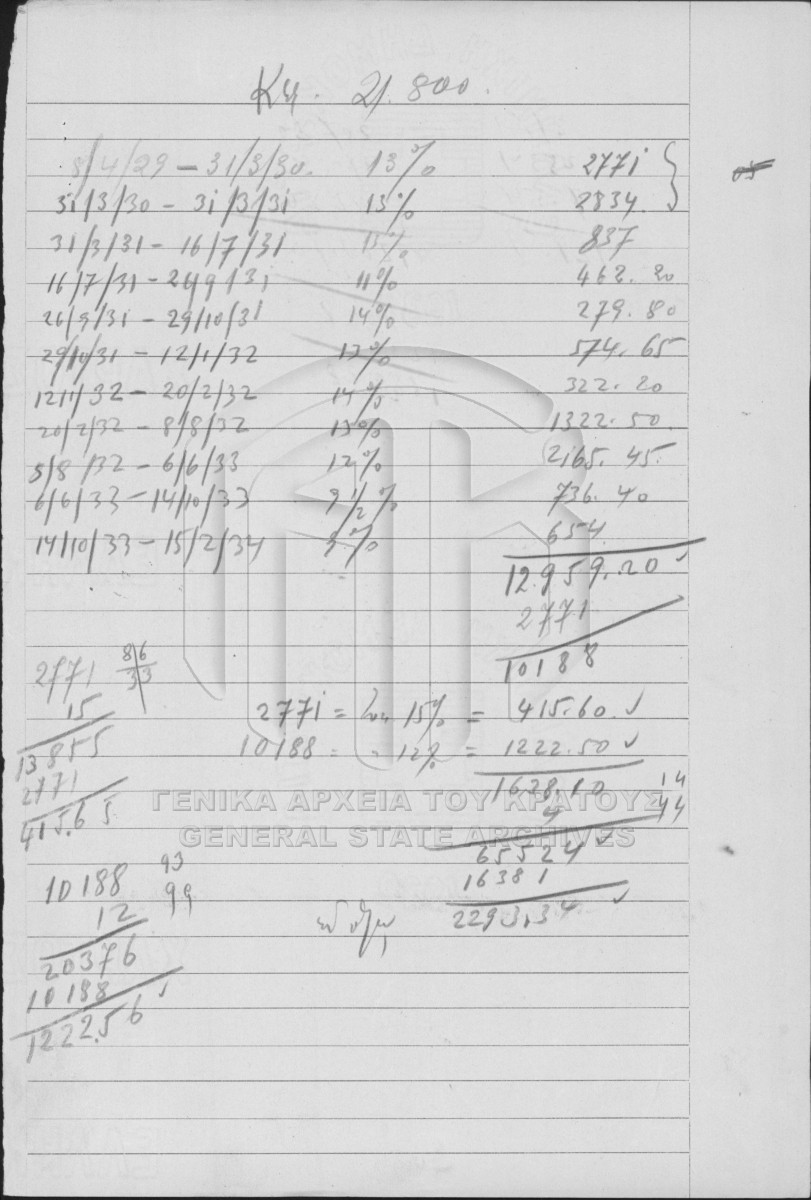 Κεφ. 21.800.
8/4/29 – 31/3/30. 13% 2771
31/3/30 – 31/3/31 13% 2834.
31/3/31 – 16/7/31 13% 837
16/7/31 – 26/9/31 11% 462.20
26/9/31 – 29/10/31 14% 279.80
29/10/31 – 12/1/32 13% 574.65
12/1/32 – 20/2/32 14% 322.20
20/2/32 – 8/8/32 13% 1322.50.
8/8/32 – 6/6/33 12% 2165.45.
6/6/33 – 14/10/33 9 1/2 % 736.40
14/10/33 – 15/2/34 9% 654.
12.959.20
2771
10188
2771 86
33
15
13855
2771
415.65
2771 = 15% = 415.60.
10188 = " 12% = 1222.50
1638,10 14
4 44
65524
16381
2293,34
10188 93
99
12
20376
10188
1222.56
ΓΕΝΙΚΑ ΑΡΧΕΙΑ ΤΟΥ ΚΡΑΤΟΥΣ
GENERAL STATE ARCHIVES